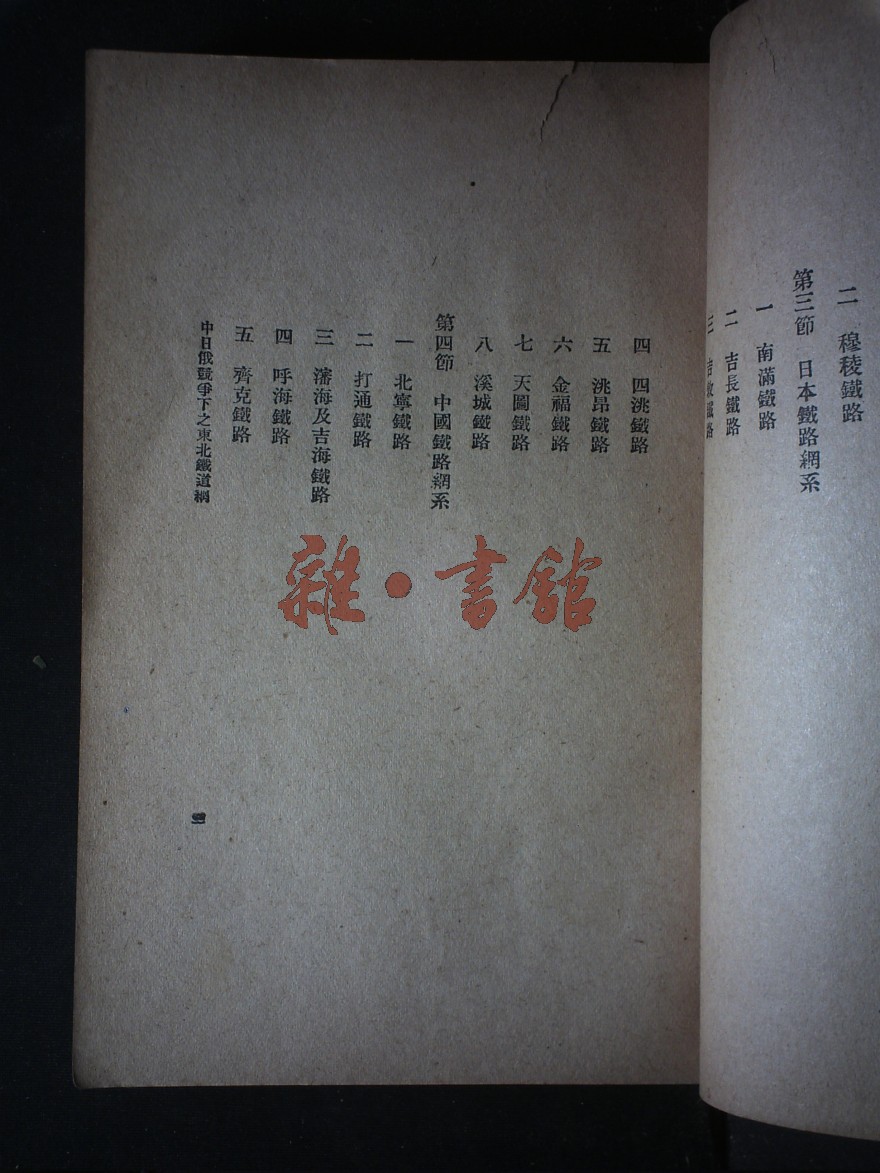 二　穆稜鐵路
第三節　日本鐵路網系
一　南滿鐵路
二　吉長鐵路
三　吉敦鐵路
四　四洮鐵路
五　洮昂鐵路
六　金福鐵路
七　天圖鐵路
八　溪城鐵路
第四節　中國鐵路網系
一　北寧鐵路
二　打通鐵路
三　瀋海及吉海鐵路
四　呼海鐵路
五　齊克鐵路
中日俄競爭下之東北鐵道網
雜·書館